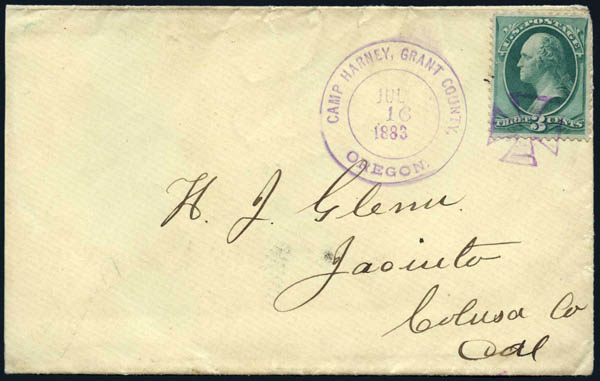 U.S. POSTAGE
THREE 3 CENTS
CAMP HARNEY, GRANT COUNTY,
JUL
16
1883
OREGON.
H. J. Glenn.
Jacinto
Colusa Co
Cal